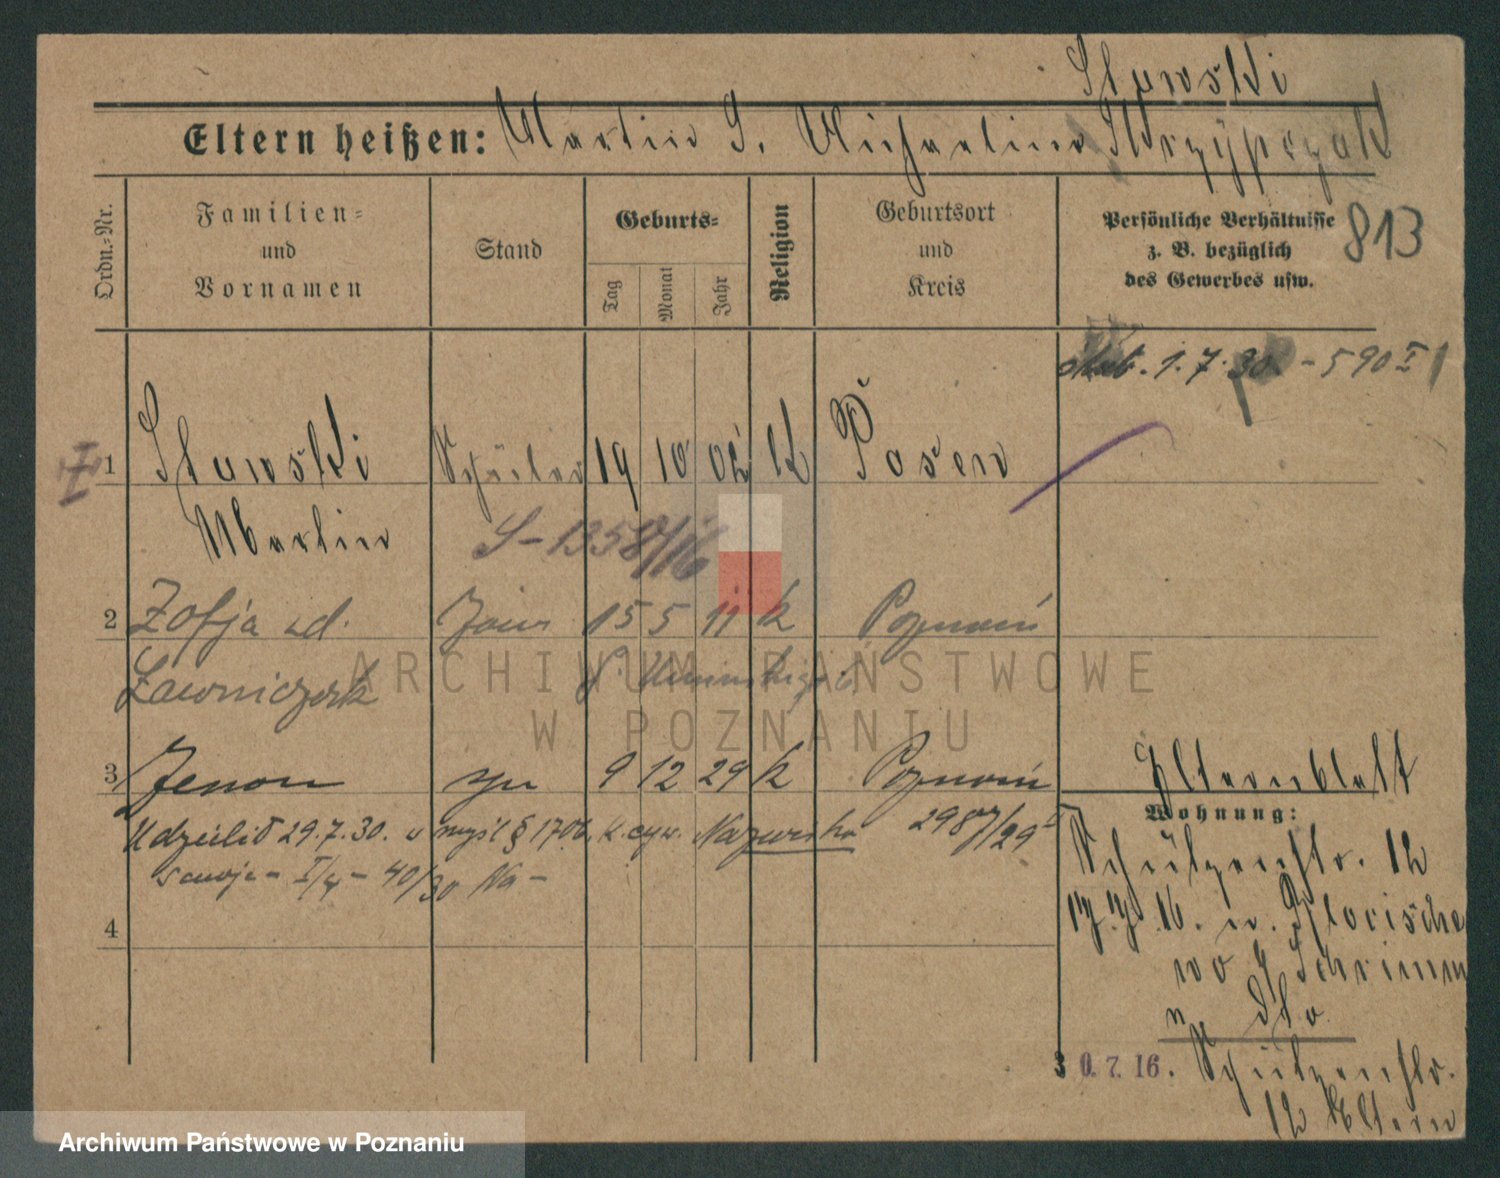 Stawski
Eltern heißen: Martin S. Michaelina Skrzypczak
Ordn.-Nr.
Familien-
und
Vornamen
Stand
Geburts-
Tag
Monat
Jahr
Religion
Geburtsort
und
Kreis
Persönliche Verhältnisse
z. B. bezüglich
des Gewerbes usw.
813
1.7.30. - 590 I
I 1 Stawski Schüler 19 10 02 k Posen
Martin
S-1358/16
2 Zofja zd. żona 15 5 11 k Poznań
Ławniczak
3 Zenon syn 9 12 29 k Poznań
Elternblatt
Udzielił 29.7.30. w myśl § 1706. k. cyw. Nazwisko
2987/29
swoje - I/4 - 40/30 Na -
4
Wohnung:
Schützenstr. 12
17.7.16. n.
Schrimm
n dto
30.7.16. Schützenstr.
12 Eltern
ARCHIWUM PAŃSTWOWE
W POZNANIU
Archiwum Państwowe w Poznaniu